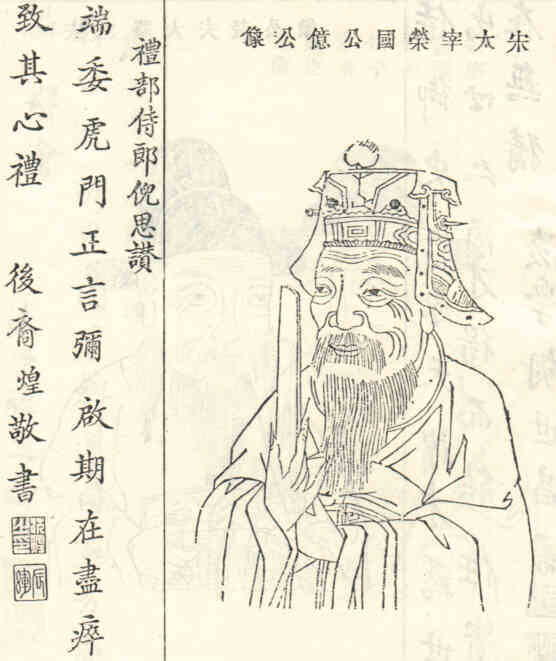 宋太宰榮國公億公像
禮部侍郎倪思讃
端委虎門正言彌 啟期在盡瘁
致其心禮 後裔煌敬書